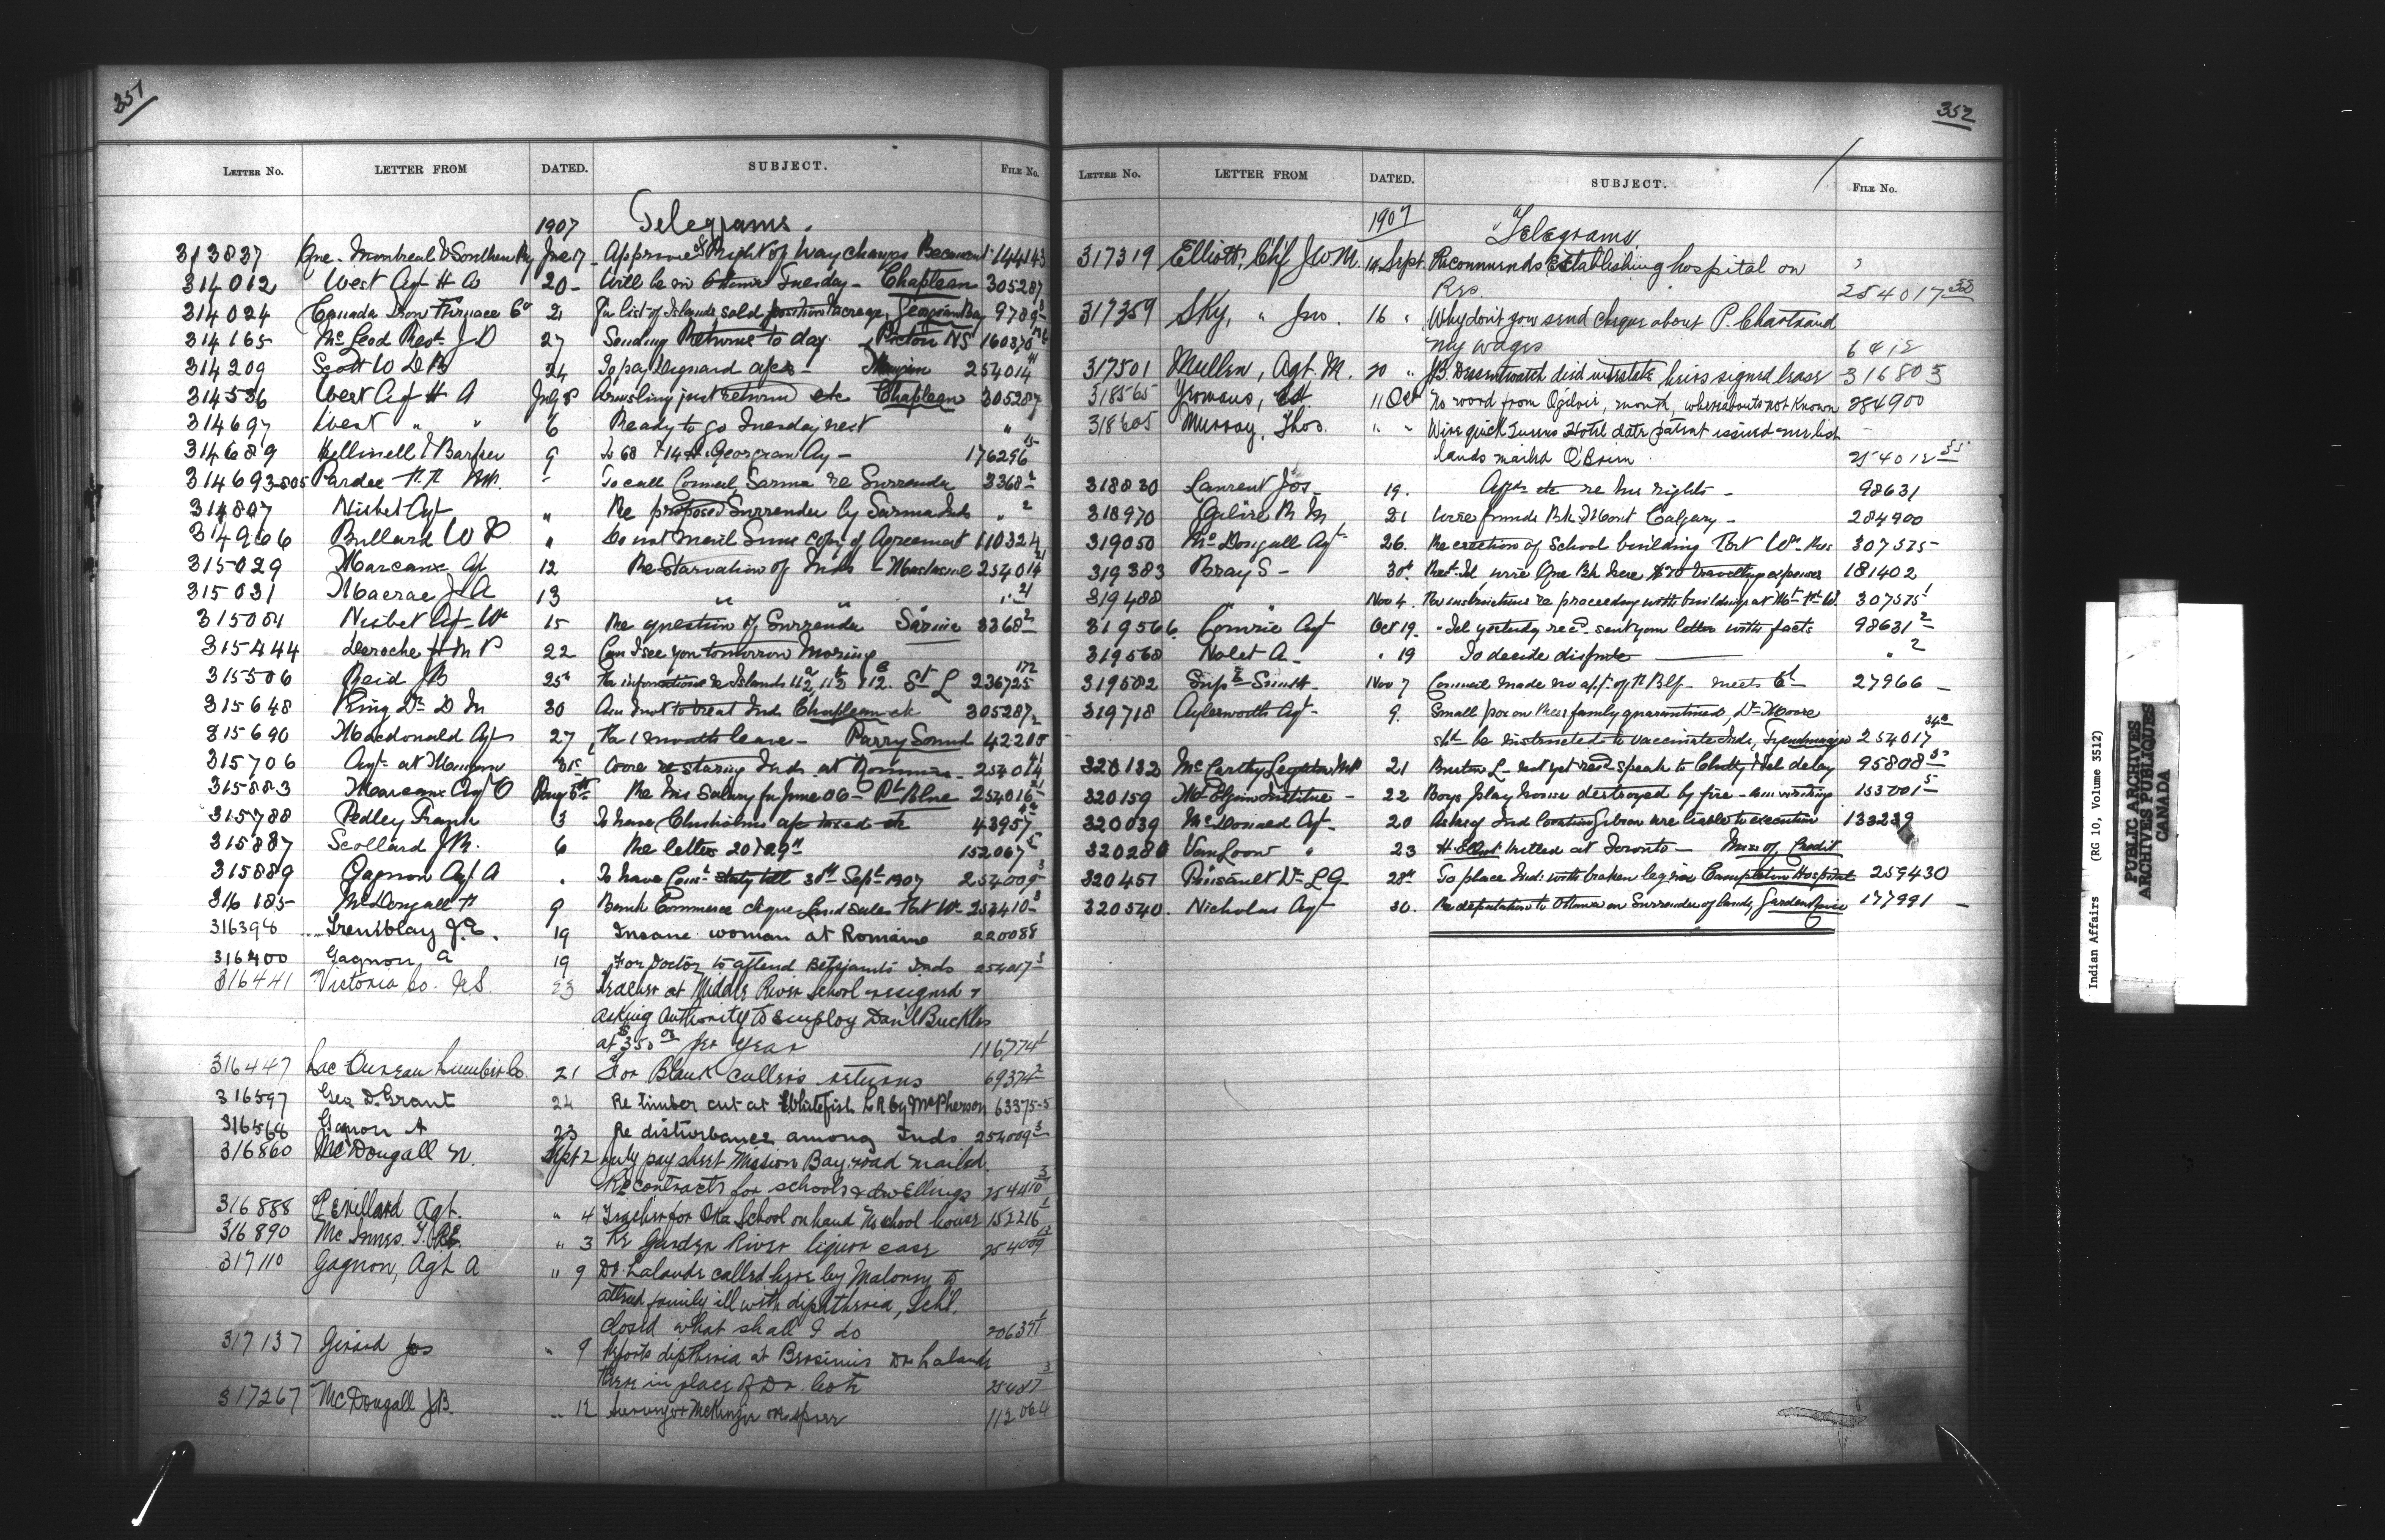 351
LETTER NO. LETTER FROM DATED. SUBJECT. FILE NO.
1907 Telegrams.
313837 Que. Montreal & Southern Ry June 17 Approve of Right of Way changes 144143
314012 West Agt H A 20 - Will be in Ottawa Tuesday - Chapleau 305287
314024 Canada Iron Furnace Co 21 For list of Islands sold position acreage, Georgian Bay 9789
314165 McLeod Revd J D 27 Sending Returns to day. Picton NS 160370
314209 Scott W D B 24 To pay a/cs - 254014
314536 West Agt H A July 8 just returned etc Chapleau 305287
314697 West " " 6 Ready to go Tuesday next " "
314689 & Barker 9 Is 68 Georgian Ay - 176296
314693-805 Pardee F. F. MP. - To call Council Sarnia re Surrender 3368 2
314807 Nisbet Agt " Re proposed Surrender by Sarnia Inds " 2
314966 Bullard W P " Do not mail Simc copy of Agreement 110324
315029 Marcoux Agt 12 Re Starvation of Inds - 254014
315031 Macrae J A 13 " " " 21
315084 Nisbet Agt Wm 15 Re question of Surrender Sarnia 3368 2
315444 Deroche H M P 22 Can I see you tomorrow Morning
315506 Reid J B 25 For information re Islands 112 112 112 St L 236725 172
315648 King Dr D M 30 Am I not to treat Inds Chapleau etc 305287
315690 Macdonald Agt 27 For 1 month leave - Parry Sound 42205
315706 Agt at 31 starving Inds at 254014
315883 Marcoux Agt O Aug 5th Re his Salary for June 06 - Pt Blue 254016
315788 Pedley Frank 3 To have Chisholms a/c taxed etc 43957
315887 Scollard J R. 6 Re letters 20 & 29th 152067
315889 Gagnon Agt A . To have Comr stay till 30th Sept 1907 254009 3
316185 McDougall N 9 Bank Commerce cheque Land sales Fort Wm 253410 3
316398 Tremblay J. E. 19 Insane woman at Romaine 220088
316400 Gagnon, A 19 For Doctor to attend Betsiamits Inds 254017 3
316441 Victoria Co. N.S. 23 Teacher at Middle River School resigned &
asking authority to employ Danl Buckles
at $350.00 per year 116774 1
316447 Lac Lumber Co. 21 For Blank cullers returns 69374 2
316597 Geo. D. Grant 24 Re timber cut at Whitefish L R by McPherson 63375-5
316568 Gagnon A 23 Re disturbance among Inds 254009 3
316860 McDougall N. Sept 2 July pay sheet Mission Bay road mailed.
Re contracts for schools & dwellings 254410 3
316888 Agt. " 4 Teacher for Oka School on hand No school house 152216 1
316890 McInnes. T. R. E. " 3 Re Garden River liquor case 254009 12
317110 Gagnon, Agt A " 9 Dr. Lalande called here by Maloney to
attend family ill with diphtheria, Schl.
closed what shall I do 206371
317137 Girard Jos " 9 Reports diptheria at Bersimis Dr Lalande
there in place of Dr. 25487 3
317267 McDougall J B. " 12 Surveyor McKenzie 112064
352
LETTER NO. LETTER FROM DATED. SUBJECT. FILE NO.
1907 Telegrams.
317319 Elliott, Chf J W M. 14 Sept. Recommends establishing hospital on
Res. 254017 38
317359 Sky, " Jno. 16 " Why dont you send cheque about P. Chartrand
my wages 6412
317501 Mullen, Agt. M. 20 " J B. died intestate heirs signed lease 316803
318565 Yeomans, 11 Oct No word from Ogilvie, month, whereabouts not known 284900
318605 Murray, Thos. " " Wire quick Hotel date patent issued
lands marked O'Brien 254012 55
318830 Laurent Jos - 19. etc re his rights - 98631
318970 Ogilvie R M 21 Wire funds Bk of Mont Calgary - 284900
319050 McDougall Agt 26. Re erection of School building Fort Wm Res 307575
319383 Bray S - 30th wire Que Bk here $70 travelling expenses 181402
319488 " " Nov 4. For instructions re proceeding with buildings at Ft. W. 307575 1
319566 Comire Agt Oct 19. Tel yesterday recd. sent you letter with facts 98631 2
319568 Nolet A - " 19 To decide dispute " 2
319582 Supt Smith - Nov 7 Council made no appt. of meets 6th 27966 -
319718 Aylesworth Agt - 9. Small pox on Res family quarantined, Dr Moore
shd be instructed to vaccinate Inds, Tyendinaga 254017
320132 McCarthy Leighton MP 21 L - not yet recd speak to Chitty & tel delay 95808
320159 Mt Elgin Institute - 22 Boys play house destroyed by fire - am writing 153001 5
320039 McDonald Agt - 20 Asks if Ind location are liable to execution 133239
320280 VanLoon " 23 H Elliot killed at Toronto - Miss of Credit
320457 Pinsault Dr L G 28th To place Ind: with broken leg in Campbelton Hospital 259430
320540. Nicholas Agt 30. Re deputation to Ottawa on Surrender of lands, Garden River 177991 -
Indian Affairs (RG 10, Volume 3512)
PUBLIC ARCHIVES
ARCHIVES PUBLIQUES
CANADA